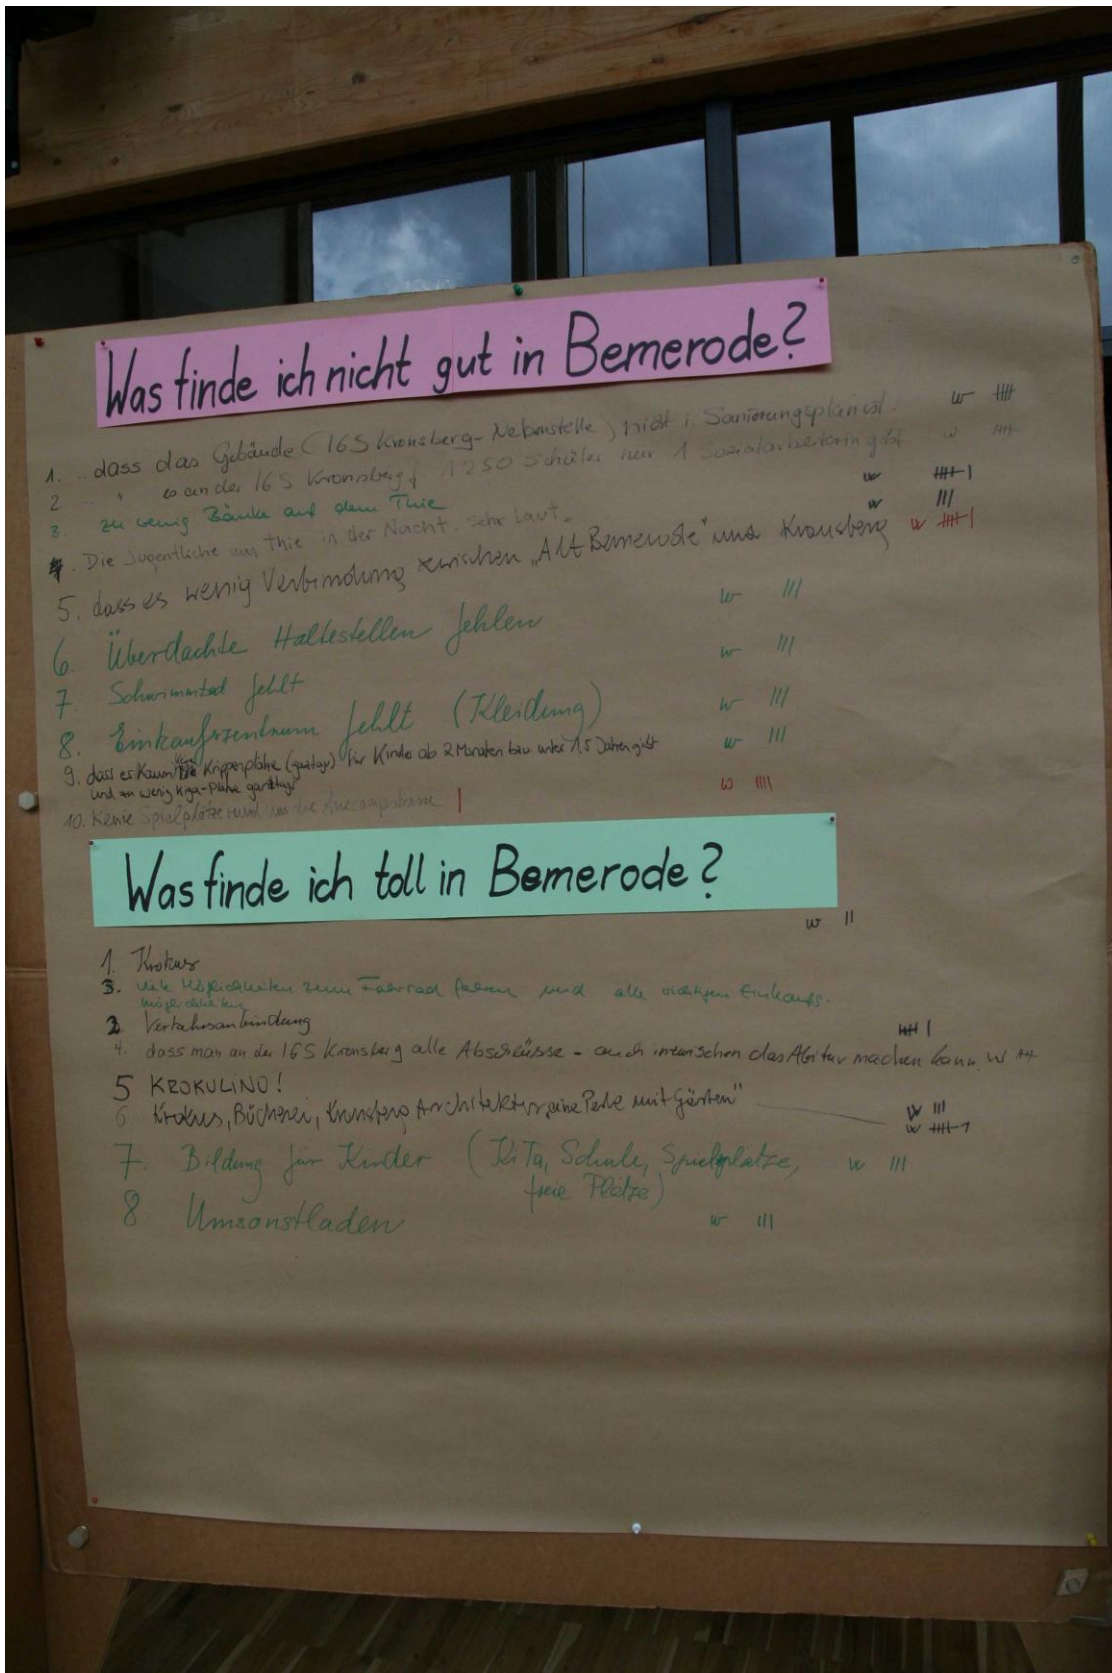 Was finde ich nicht gut in Bemerode?
1. .. dass das Gebäude (IGS Kronsberg-Nebenstelle) nicht i. Sanierungsplan ist. w ||||
2 .. " es an der IGS Kronsberg f. 1250 Schüler nur 1 Sozialarbeiterin gibt w
3. zu wenig Bänke auf dem Thie w |||| |
4. Die Jugentliche am Thie in der Nacht. sehr Laut. w |||
5. dass es wenig Verbindung zwischen „Alt Bemerode" und Kronsberg w |||| |
6. Überdachte Haltestellen fehlen w |||
7 Schwimmbad fehlt w |||
8. Einkaufszentrum fehlt (Kleidung) w |||
9. dass es kaum Krippenplätze (ganztags) für Kinder ab 2 Monaten bzw. unter 1,5 Jahren gibt w |||
und zu wenig Kiga-Plätze ganztags w ||||
10. Keine Spielplätze rund um die |
Was finde ich toll in Bemerode?
w ||
1. Krokus
3. viele Möglichkeiten zum Fahrrad fahren und alle wichtigen Einkaufs-
möglichkeiten
2 Verkehrsanbindung |||| |
4. dass man an der IGS Kronsberg alle Abschlüsse - auch inzwischen das Abitur machen kann w
5 KROKULINO!
6 Krokus, Bücherei, Kronsberg Architektur „eine Perle mit Gärten" w |||
w |||| 1
7. Bildung für Kinder (KiTa, Schule, Spielplätze, w |||
freie Plätze)
8 Umsonstladen w |||